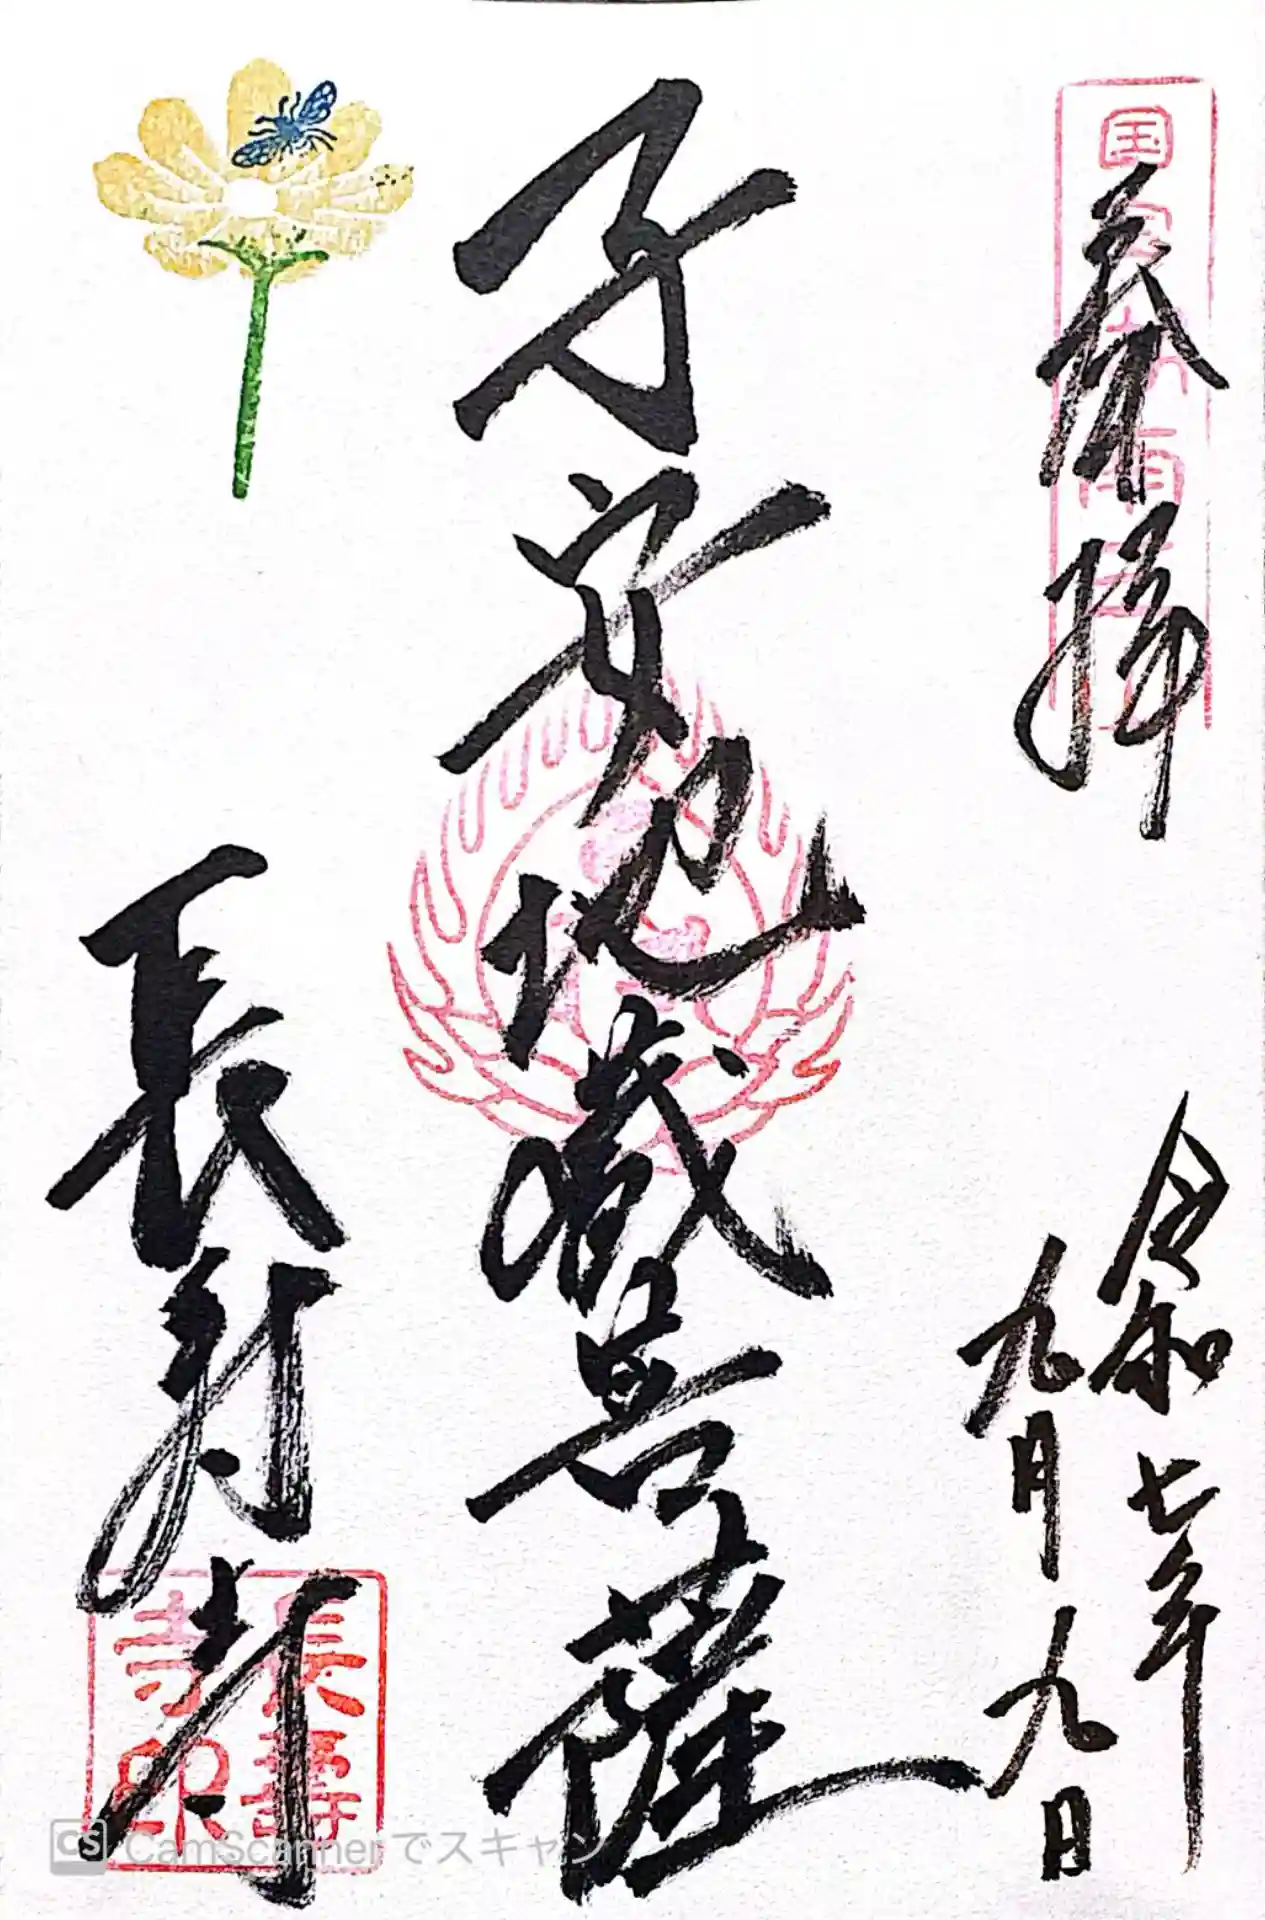 奉拝
令和七年
九月九日
子安地蔵菩薩
長寿寺
長壽
寺印
CamScannerでスキャン